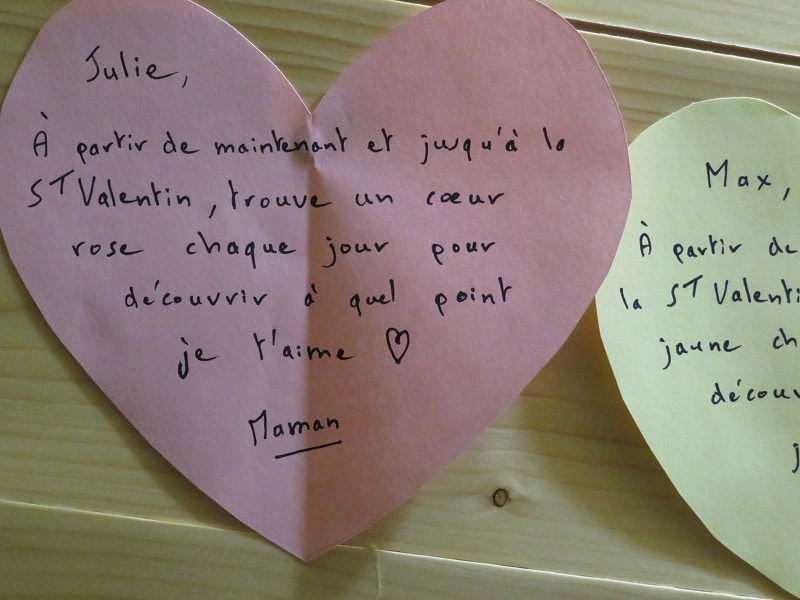 Julie,
À partir de maintenant et jusqu'à la
ST Valentin, trouve un cœur
rose chaque jour pour
découvrir à quel point
je t'aime ♡
Maman
Max,
À partir de
la ST Valenti
jaune ch
découv
j